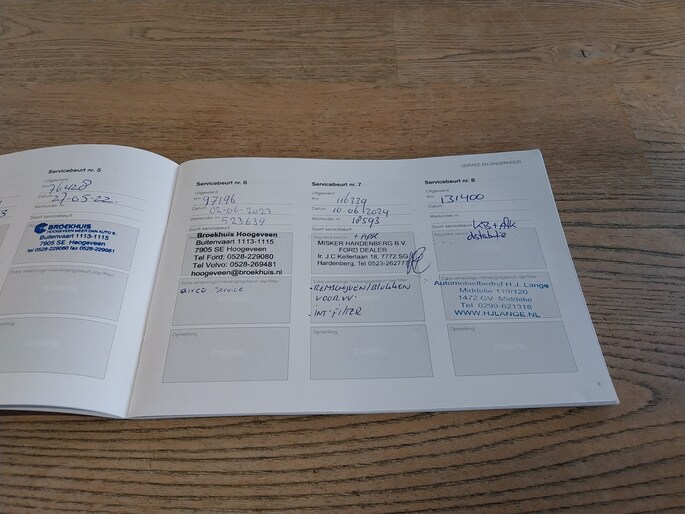 SERVICE EN ONDERHOUD
Servicebeurt nr. 5
Uitgevoerd
76428
27-05-22
Soort servicebeurt
BROEKHUIS
HOOGEVEEN MEER DAN AUTO'S
Buitenvaart 1113-1115
7905 SE Hoogeveen
tel 0528-229080 fax 0528-229081
Servicebeurt nr. 6
Uitgevoerd
Km 97196
Datum 02-06-2023
Werkorder nr. 523639
Broekhuis Hoogeveen
Buitenvaart 1113-1115
7905 SE Hoogeveen
Tel Ford: 0528-229080
Tel Volvo: 0528-269481
hoogeveen@broekhuis.nl
airco service
Opmerking
Servicebeurt nr. 7
Uitgevoerd
Km 116339
Datum 10-06-2024
Werkorder nr. 18593
+ APK
MISKER HARDENBERG B.V.
FORD DEALER
Ir. J.C. Kellerlaan 18, 7772 SG
Hardenberg, Tel 0523-26277
- REMSCHIJVEN/BLOKKEN
VOOR VV
- INT. FILTER
Opmerking
Servicebeurt nr. 8
Uitgevoerd
Km 131400
Datum
Werkorder nr.
Soort servicebeurt KB + APK
distributie
Automobielbedrijf H.J. Lange
Middelie 119/120
1472 GV Middelie
Tel. 0299-621318
WWW.HJLANGE.NL
Opmerking